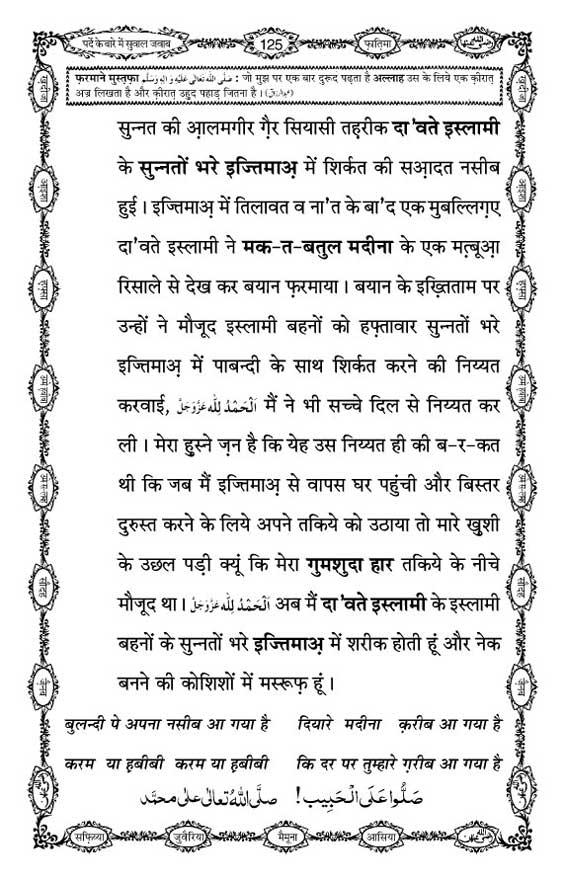 पर्दे के बारे में सुवाल जवाब
125
फ़ातिमा
फ़रमाने मुस्त़फ़ा صَلَّى اللهُ تَعَالٰى عَلَيْهِ وَاٰلِهٖ وَسَلَّم : जो मुझ पर एक बार दुरूद पढ़ता है अल्लाह उस के लिये एक क़ीरात़
अज्र लिखता है और क़ीरात़ उहुद पहाड़ जितना है ।
सुन्नत की आ़लमगीर ग़ैर सियासी तह़रीक दा'वते इस्लामी
के सुन्नतों भरे इज्तिमाअ़ में शिर्कत की सआ़दत नसीब
हुई । इज्तिमाअ़ में तिलावत व ना'त के बा'द एक मुबल्लिग़ए
दा'वते इस्लामी ने मक-त-बतुल मदीना के एक मत़्बूआ़
रिसाले से देख कर बयान फ़रमाया । बयान के इख़्तिताम पर
उन्हों ने मौजूद इस्लामी बहनों को हफ़्तावार सुन्नतों भरे
इज्तिमाअ़ में पाबन्दी के साथ शिर्कत करने की निय्यत
करवाई, اَلْحَمْدُ لِلّٰه عَزَّوَجَلَّ मैं ने भी सच्चे दिल से निय्यत कर
ली । मेरा ह़ुस्ने ज़न है कि येह उस निय्यत ही की ब-र-कत
थी कि जब मैं इज्तिमाअ़ से वापस घर पहुंची और बिस्तर
दुरुस्त करने के लिये अपने तकिये को उठाया तो मारे ख़ुशी
के उछल पड़ी क्यूं कि मेरा गुमशुदा हार तकिये के नीचे
मौजूद था । اَلْحَمْدُ لِلّٰه عَزَّوَجَلَّ अब मैं दा'वते इस्लामी के इस्लामी
बहनों के सुन्नतों भरे इज्तिमाअ़ में शरीक होती हूं और नेक
बनने की कोशिशों में मस्रूफ़ हूं ।
बुलन्दी पे अपना नसीब आ गया है दियारे मदीना क़रीब आ गया है
करम या ह़बीबी करम या ह़बीबी कि दर पर तुम्हारे ग़रीब आ गया है
صَلُّوا عَلَى الْحَبِيب! صلَّى اللهُ تعالٰى على محمَّد
सफ़िय्या
जुवैरिया
मैमूना
आसिया